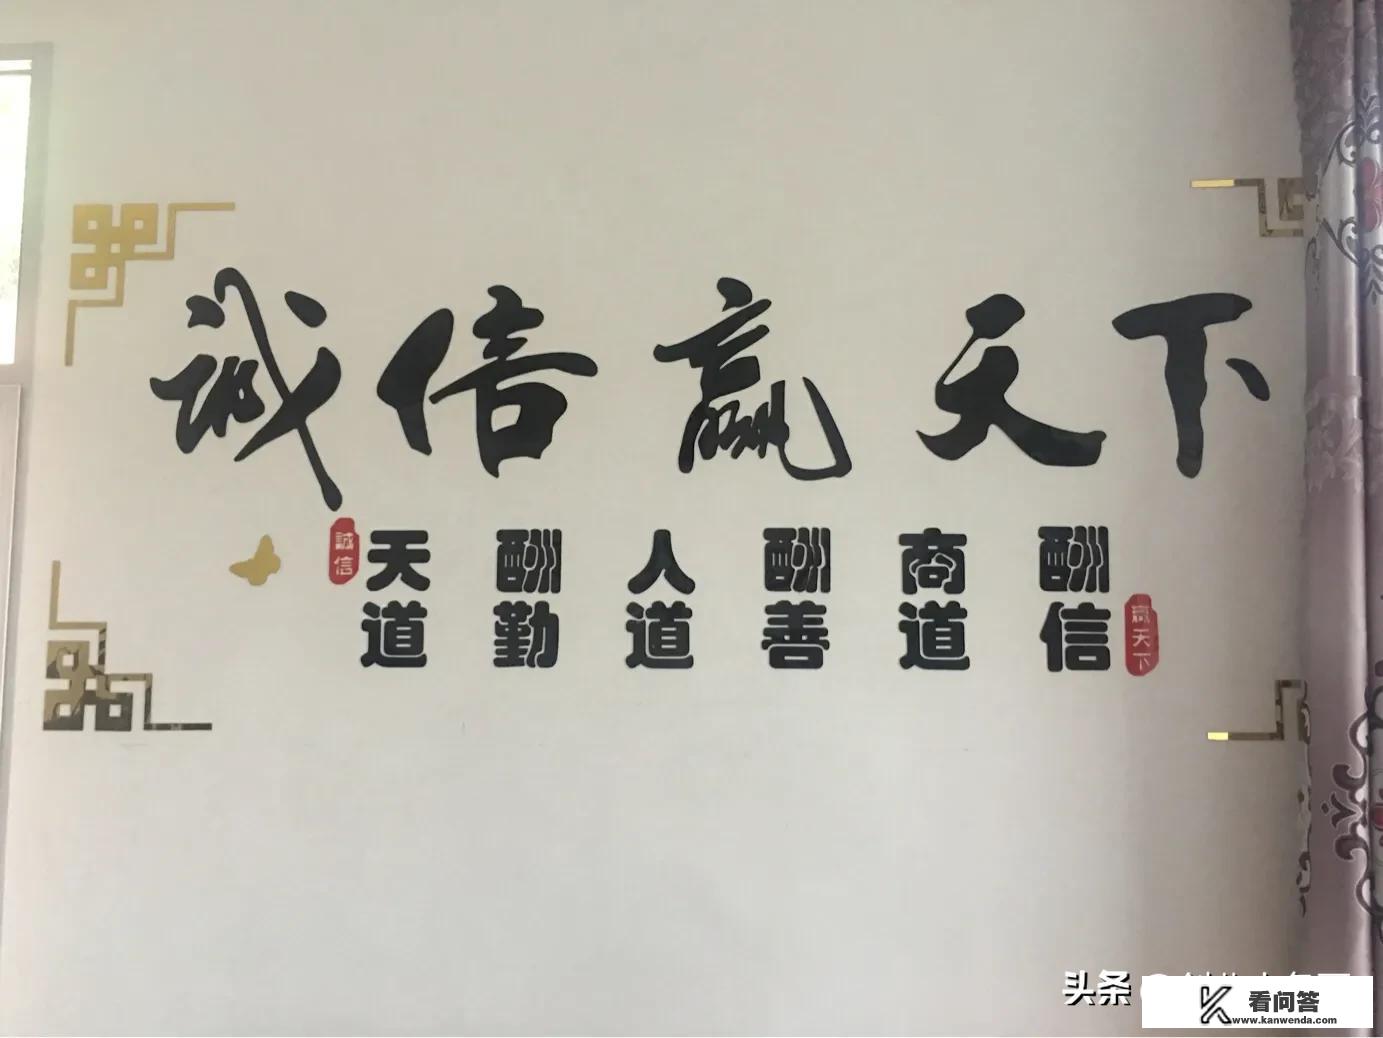 诚信赢天下
誠信
天道 酬勤 人道 酬善 商道 酬信
赢天下
头条
看问答
www.kanwenda.com